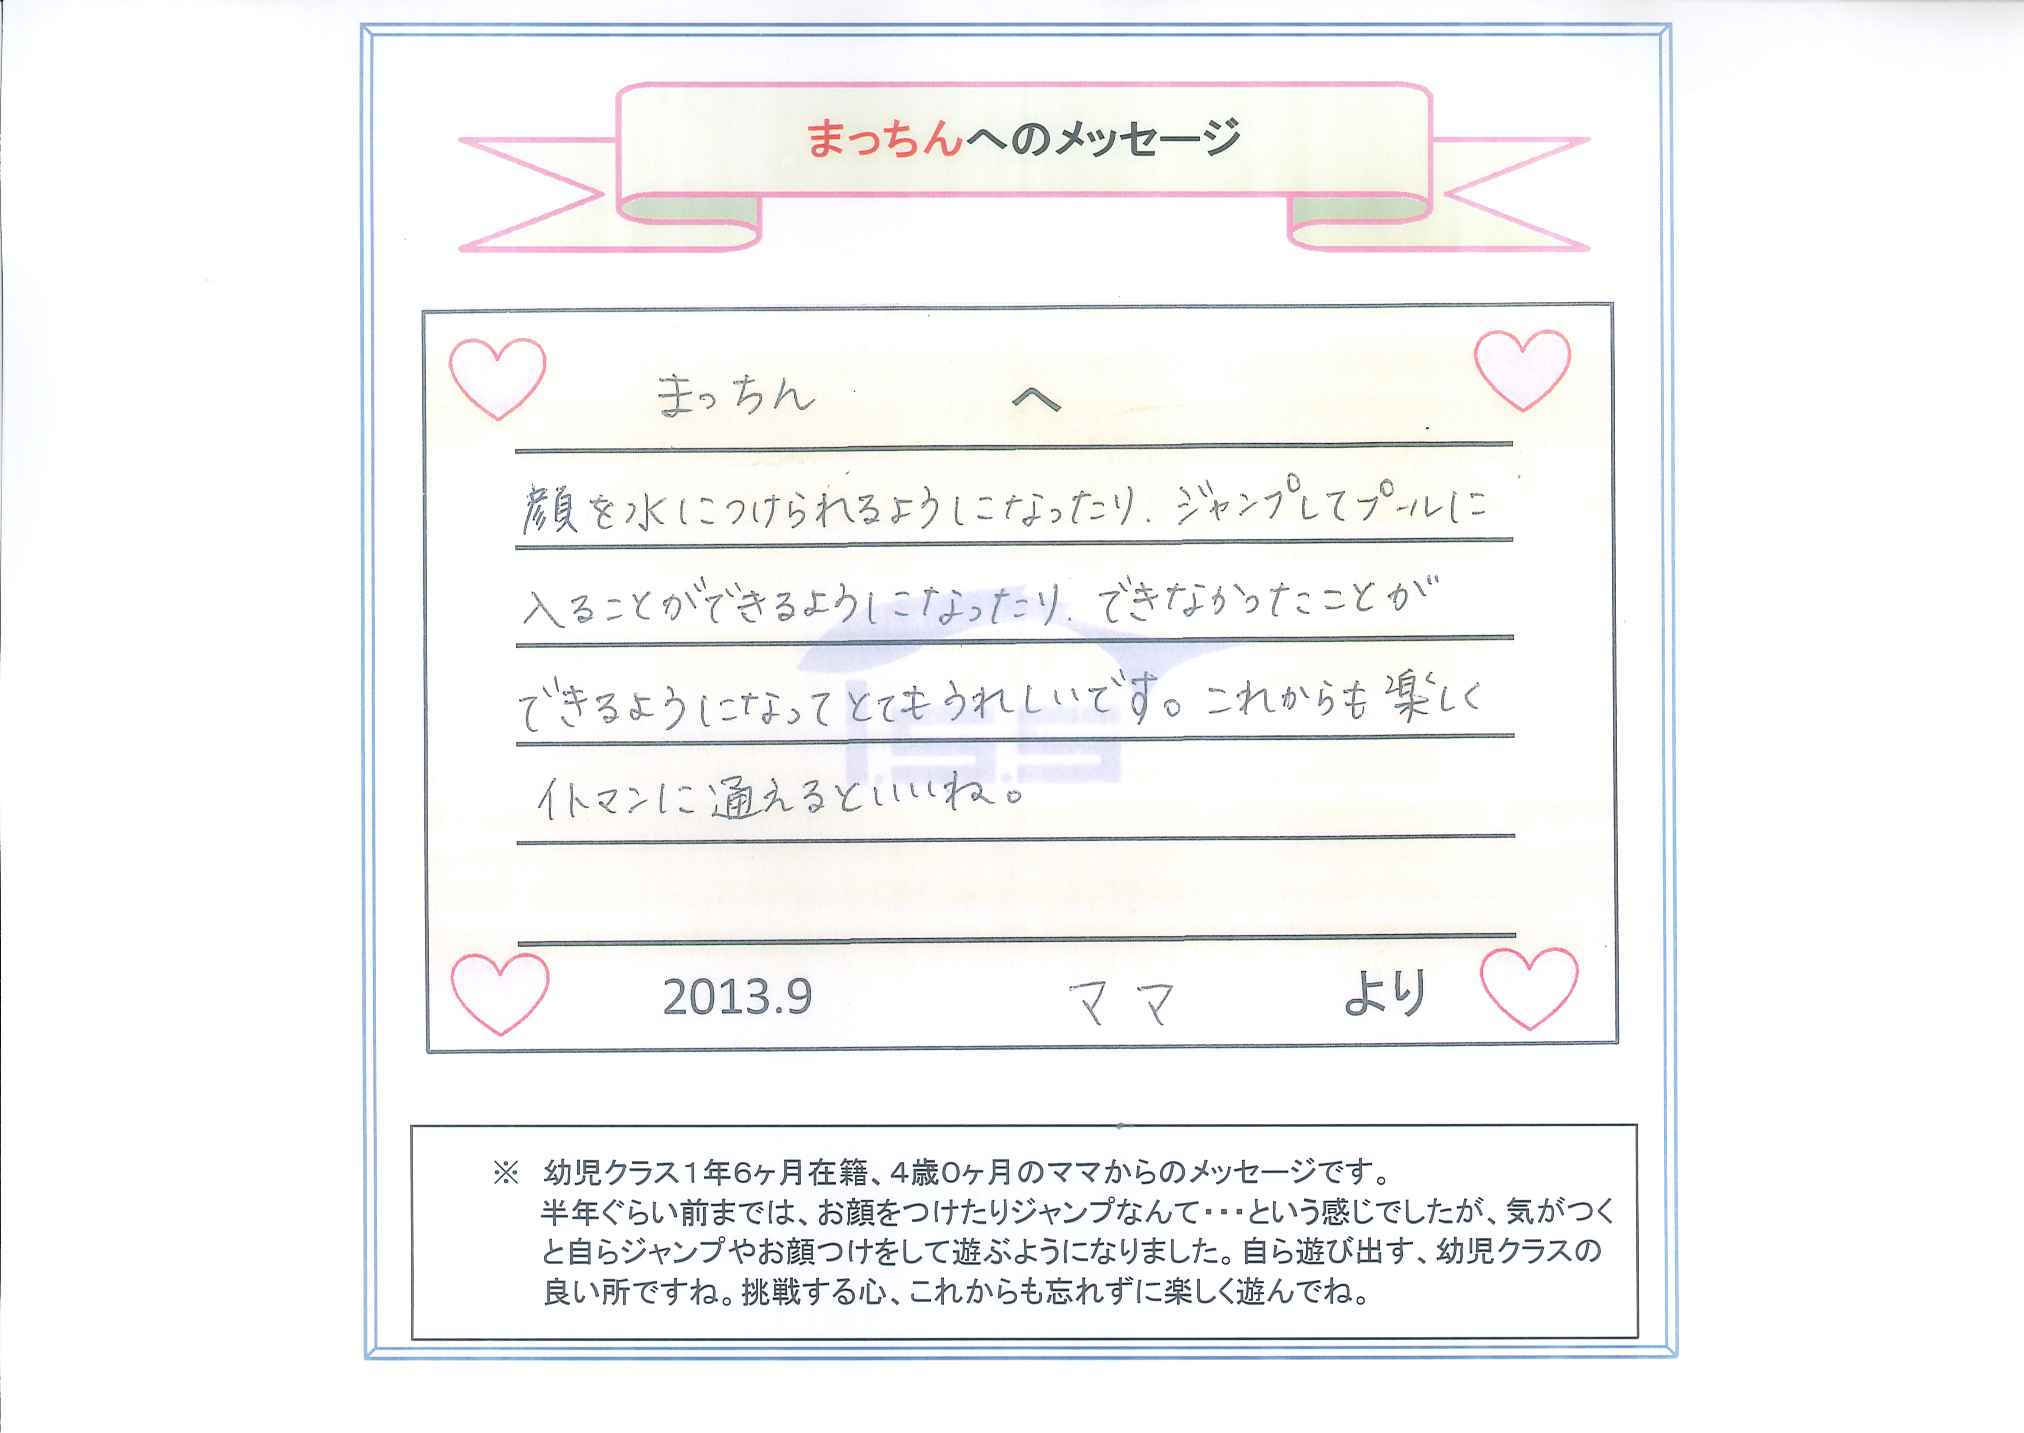 まっちんへのメッセージ
まっちん へ
顔を水につけられるようになったり、ジャンプしてプールに
入ることができるようになったり、できなかったことが
できるようになってとてもうれしいです。これからも楽しく
イトマンに通えるといいね。
I.S.S
2013.9 ママ より
※ 幼児クラス1年6ヶ月在籍、4歳0ヶ月のママからのメッセージです。
半年ぐらい前までは、お顔をつけたりジャンプなんて・・・という感じでしたが、気がつく
と自らジャンプやお顔つけをして遊ぶようになりました。自ら遊び出す、幼児クラスの
良い所ですね。挑戦する心、これからも忘れずに楽しく遊んでね。